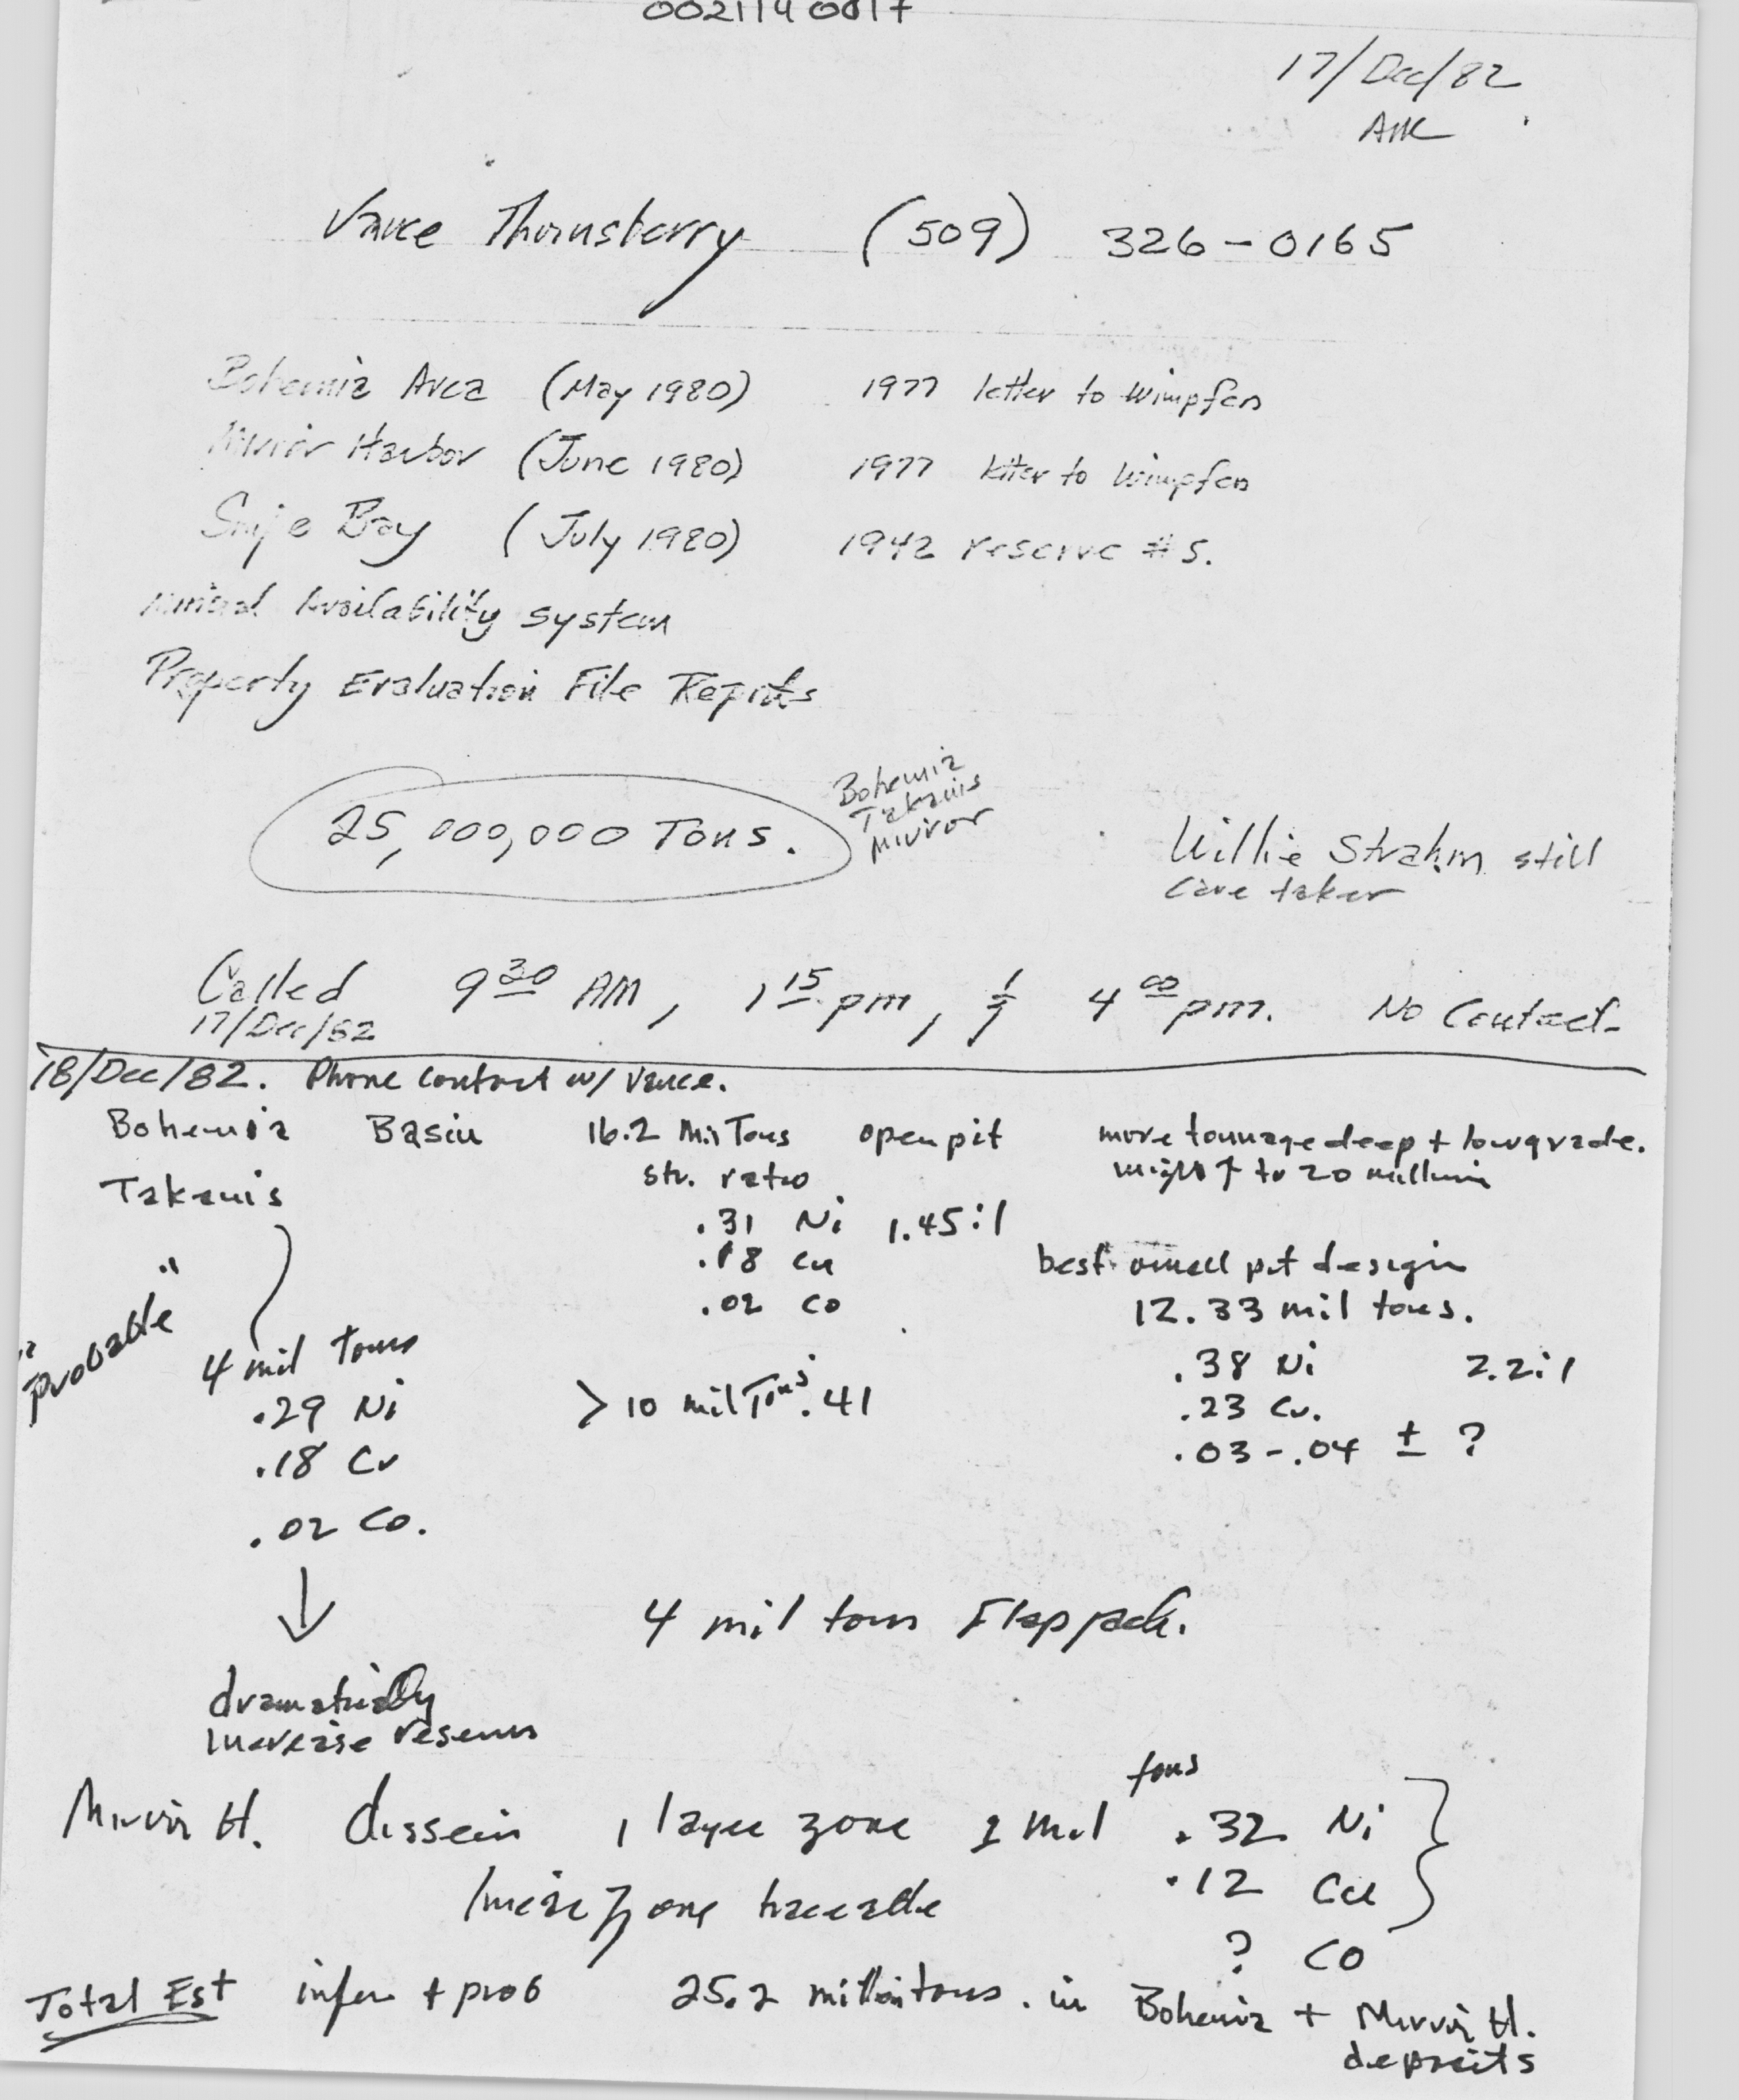 17/Dec/82
AHC
Vance Thornsberry (509) 326-0165
Bohemia Area (May 1980) 1977 letter to Wimpfen
Mirror Harbor (June 1980) 1977 letter to Wimpfen
Snipe Bay (July 1980) 1942 reserve #s.
Mineral Availability System
Property Evaluation File Reports
25,000,000 Tons.
Bohemia
Takanis
Mirror
Willie Strahm still
care taker
Called 9 30 AM, 1 15 pm, & 4 00 pm. No Contact.
17/Dec/82
18/Dec/82. Phone contact w/ Vance.
Bohemia Basin 16.2 Mil Tons open pit more tonnage deep + low grade.
Takanis str. ratio might ↑ to 20 million
.31 Ni 1.45:1
.18 Cu best small pit design
.02 Co 12.33 mil tons.
"probable"
4 mil tons .38 Ni 2.2:1
.29 Ni > 10 mil Tons .41 .23 Cu.
.18 Cu .03-.04 ± ?
.02 Co.
↓
4 mil tons Flapjack.
dramatically
increase reserves
Mirror H. dissem 1 layer zone 1 mil tons .32 Ni
zone traceable .12 Cu
? CO
Total Est infer + prob 25.2 million tons. in Bohemia + Mirror H.
deposits